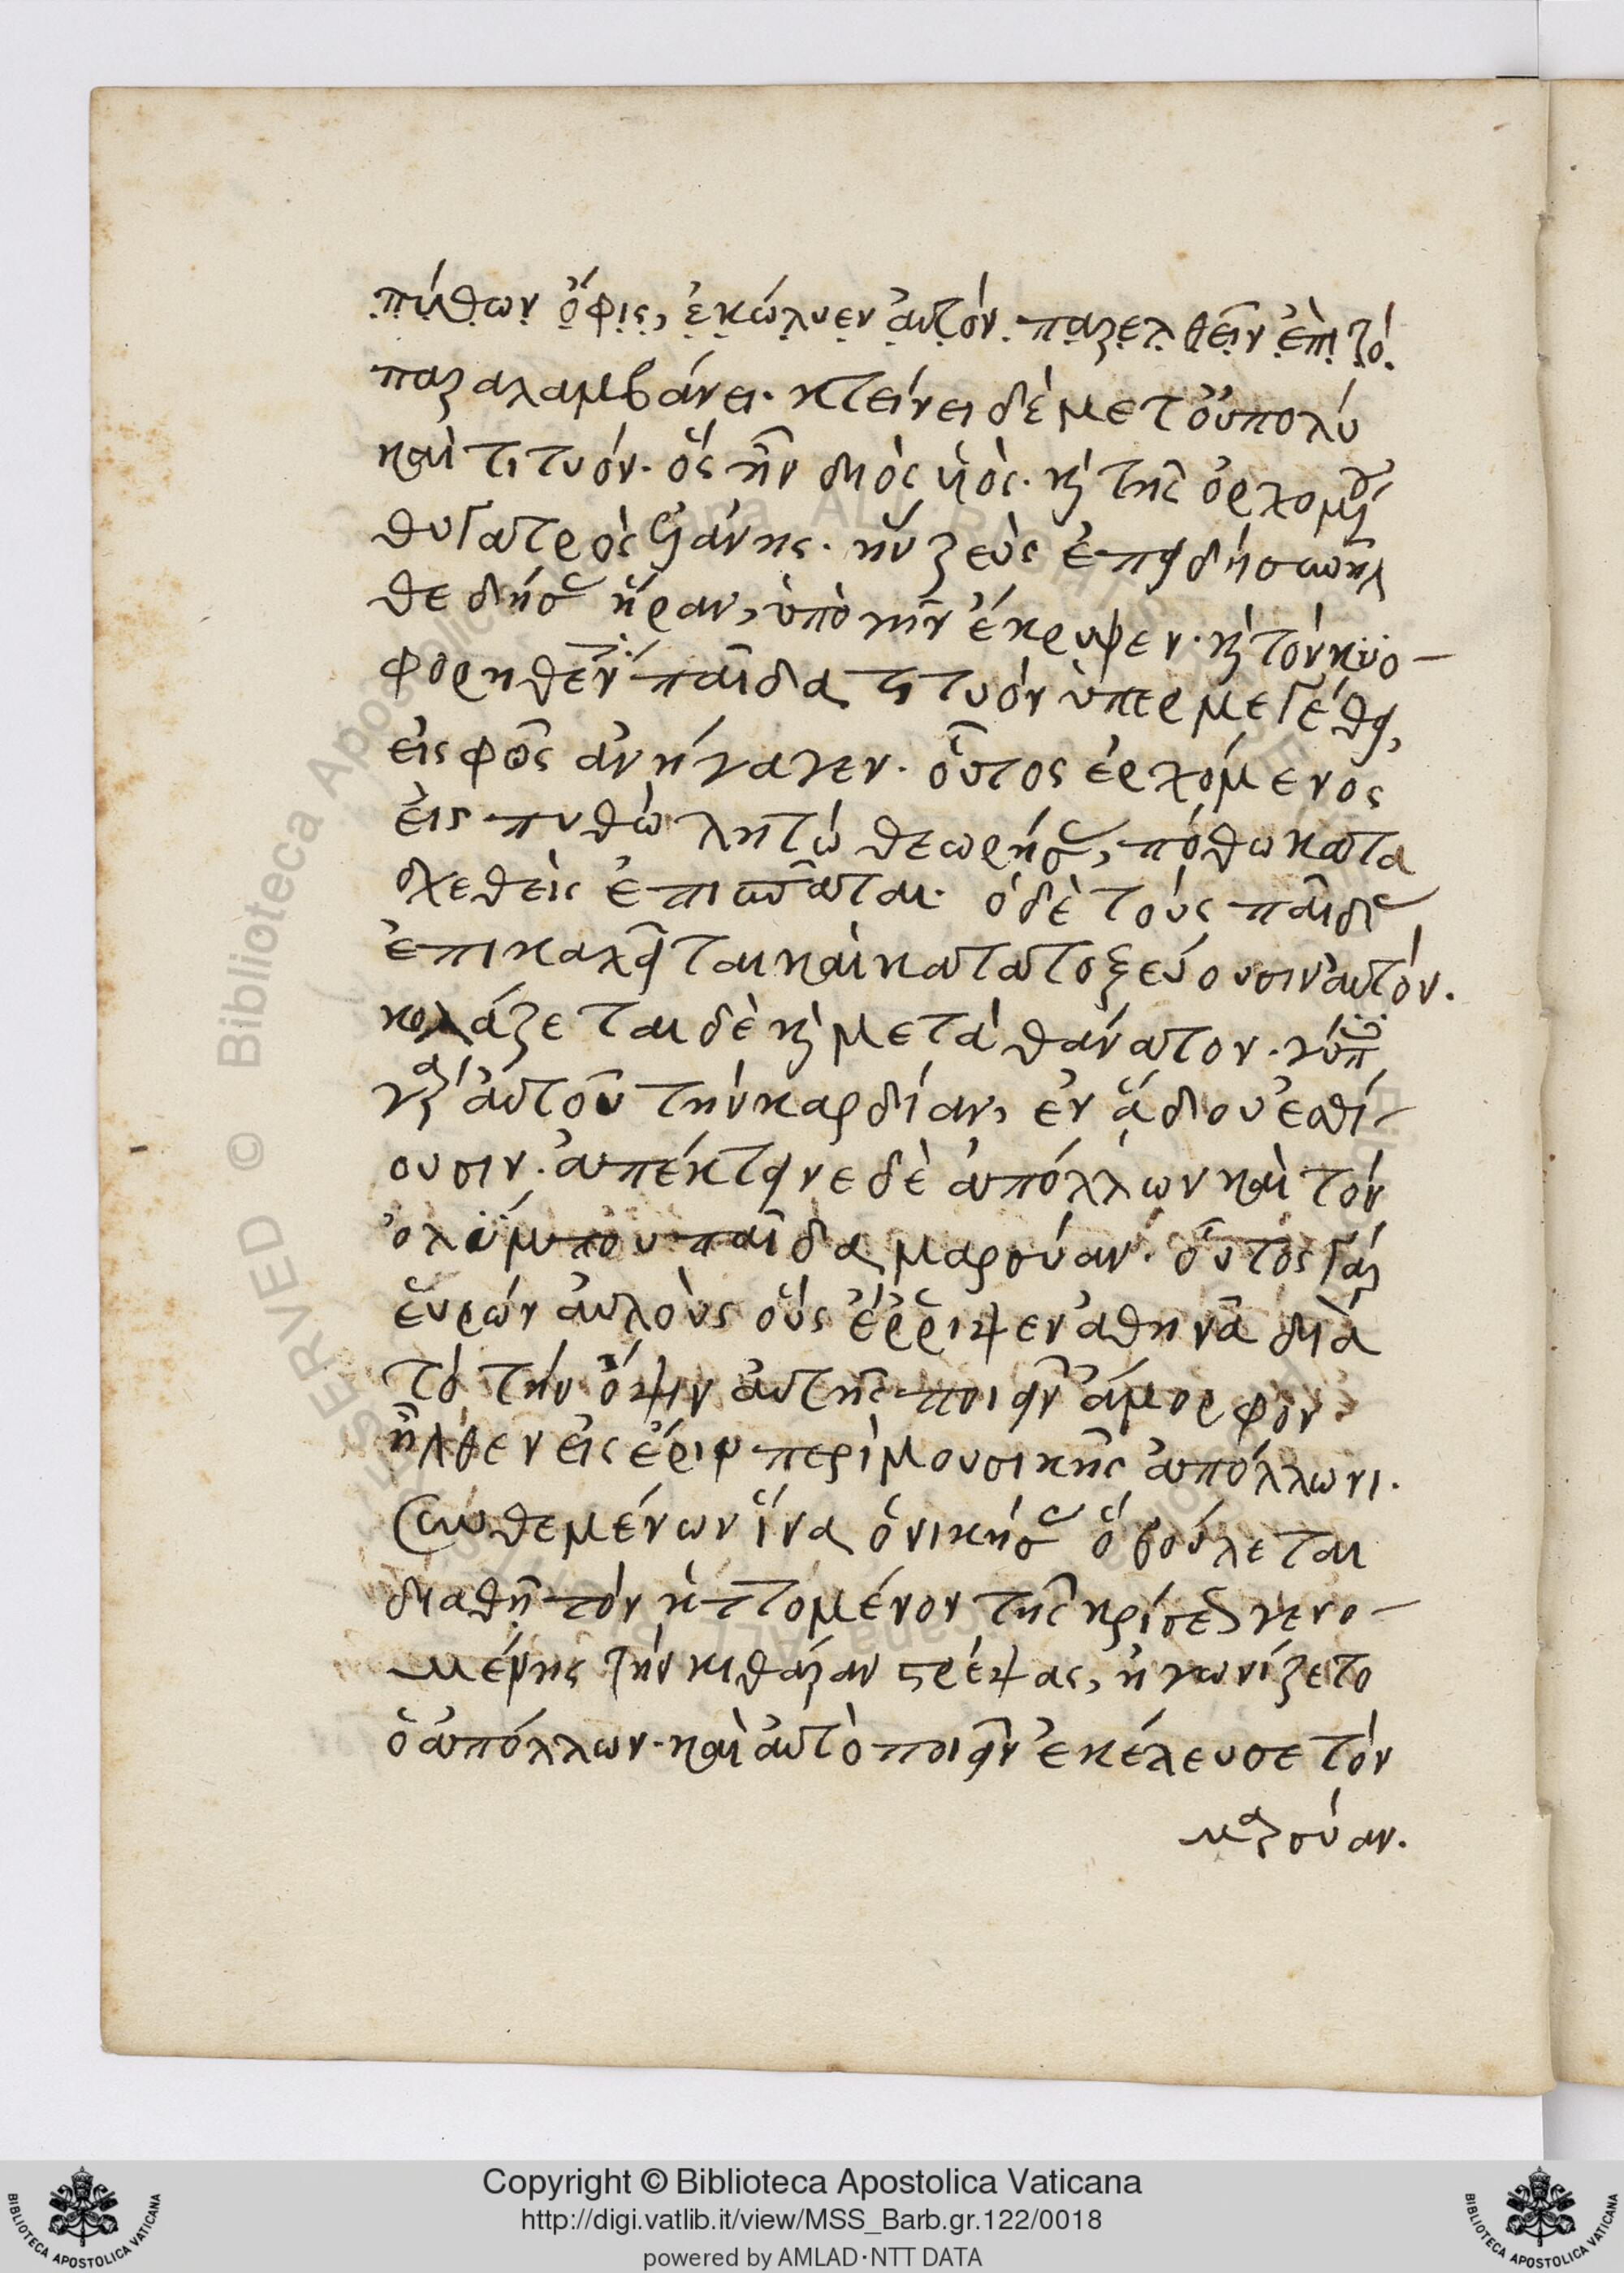 πύθων ὄφις, ἐκώλυεν αὐτὸν παρελθεῖν ἐπὶ τὸ
παραλαμβάνει. κτείνει δὲ μετ οὐ πολὺ
καὶ τιτυόν. ὃς ἦν διὸς ὑὸς. κ τῆς ὀρχομενοῦ
θυγατρὸς ἐλάνης. ἣν ζεὺς ἐπειδὴ συνῆλ
θε δήσας ἥραν, ὑπὸ γῆν ἔκρυψεν. κ τὸν κυο-
φορηθέντα παῖδα τιτυὸν ὑπερμεγέθη,
εἰς φῶς ἀνήγαγεν. οὗτος ἐρχόμενος
εἰς πυθὼ λητὼ θεωρήσας, πόθω κατα
σχεθεὶς ἐπισπᾶται. ἡ δὲ τοὺς παῖδας
ἐπικαλεῖται καὶ κατατοξεύουσιν αὐτόν.
κολάζεται δὲ κ μετὰ θάνατον. γῦπες
γὰρ αὐτοῦ τὴν καρδίαν, ἐν ἅδου ἐσθί-
ουσιν. ἀπέκτεινε δὲ ἀπόλλων καὶ τὸν
ὀλύμπου παῖδα μαρσύαν. οὗτος γὰρ
εὑρὼν αὐλοὺς οὓς ἔρριψεν ἀθηνᾶ διὰ
τὸ τὴν ὄψιν αὐτῆς ποιεῖν ἄμορφον
ἦλθεν εἰς ἔριν περὶ μουσικῆς ἀπόλλωνι.
συνθεμένων ἵνα ὁ νικήσας ὃ βούλεται
διαθῇ τὸν ἡττομένον τῆς κρίσεως γενο-
μένης τὴν κιθάραν στρέψας, ἠγωνίζετο
ὁ ἀπόλλων. καὶ αὐτὸ ποιεῖν ἐκέλευσε τὸν
μαρσύαν.
Copyright © Biblioteca Apostolica Vaticana
http://digi.vatlib.it/view/MSS_Barb.gr.122/0018
powered by AMLAD·NTT DATA
BIBLIOTECA APOSTOLICA VATICANA
BIBLIOTECA APOSTOLICA VATICANA